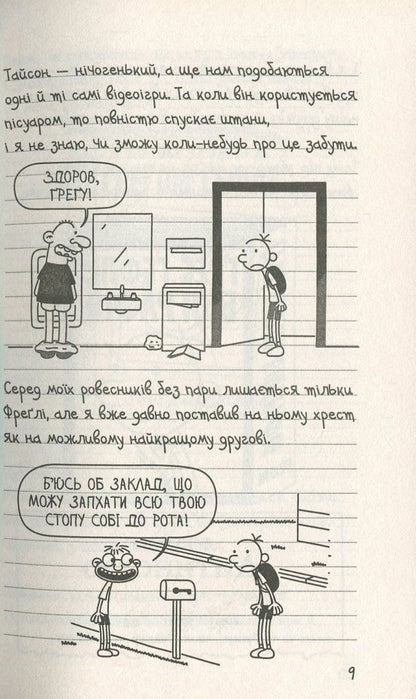 Тайсон — нічогенький, а ще нам подобаються
одні й ті самі відеоігри. Та коли він користується
пісуаром, то повністю спускає штани,
і я не знаю, чи зможу коли-небудь про це забути.
ЗДОРОВ,
ҐРЕҐУ!
Серед моїх ровесників без пари лишається тільки
Фреґлі, але я вже давно поставив на ньому хрест
Як на можливому найкращому другові.
Б'ЮСЬ ОБ ЗАКЛАД, ЩО
МОЖУ ЗАПХАТИ ВСЮ ТВОЮ
СТОПУ СОБІ ДО РОТА!
9